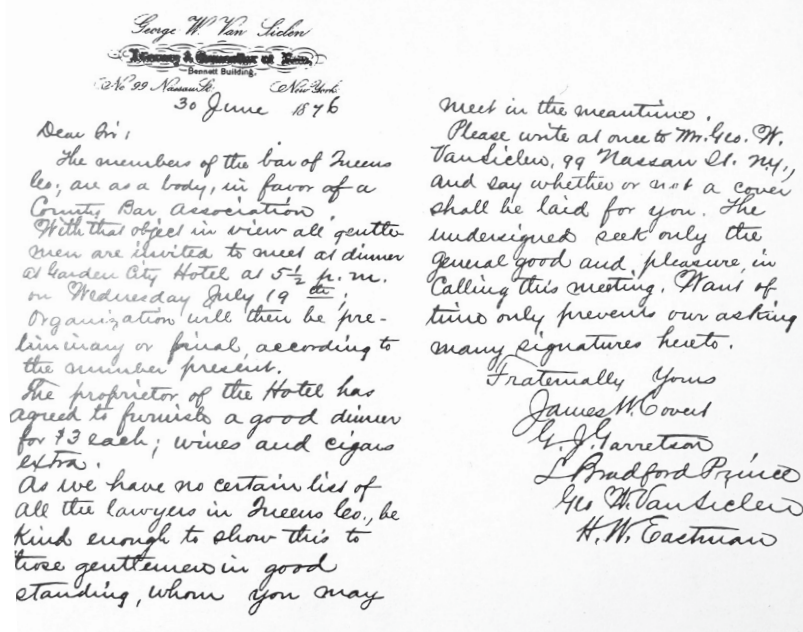 George W. Van Siclen
Attorney & Counsellor at Law,
Bennett Building.
No 99 Nassau St. New York
30 June 1876
Dear Sir;
The members of the bar of Queens
Co; are as a body, in favor of a
County Bar Association.
With that object in view all gentle-
men are invited to meet at dinner
at Garden City Hotel at 5½ p.m.
on Wednesday July 19th;
Organization will then be pre-
liminary or final, according to
the number present.
The proprietor of the Hotel has
agreed to furnish a good dinner
for $3 each; wines and cigars
extra.
As we have no certain list of
all the lawyers in Queens Co., be
kind enough to show this to
those gentlemen in good
standing, whom you may
meet in the meantime.
Please write at once to Mr. Geo. W.
VanSiclen, 99 Nassau St. N.Y.,
and say whether or not a cover
shall be laid for you. The
undersigned seek only the
general good and pleasure, in
calling this meeting. Want of
time only prevents our asking
many signatures hereto.
Fraternally Yours
James W. Covert
G. J. Garretson
L Bradford Prince
Geo W. VanSiclen
H. W. Eastman